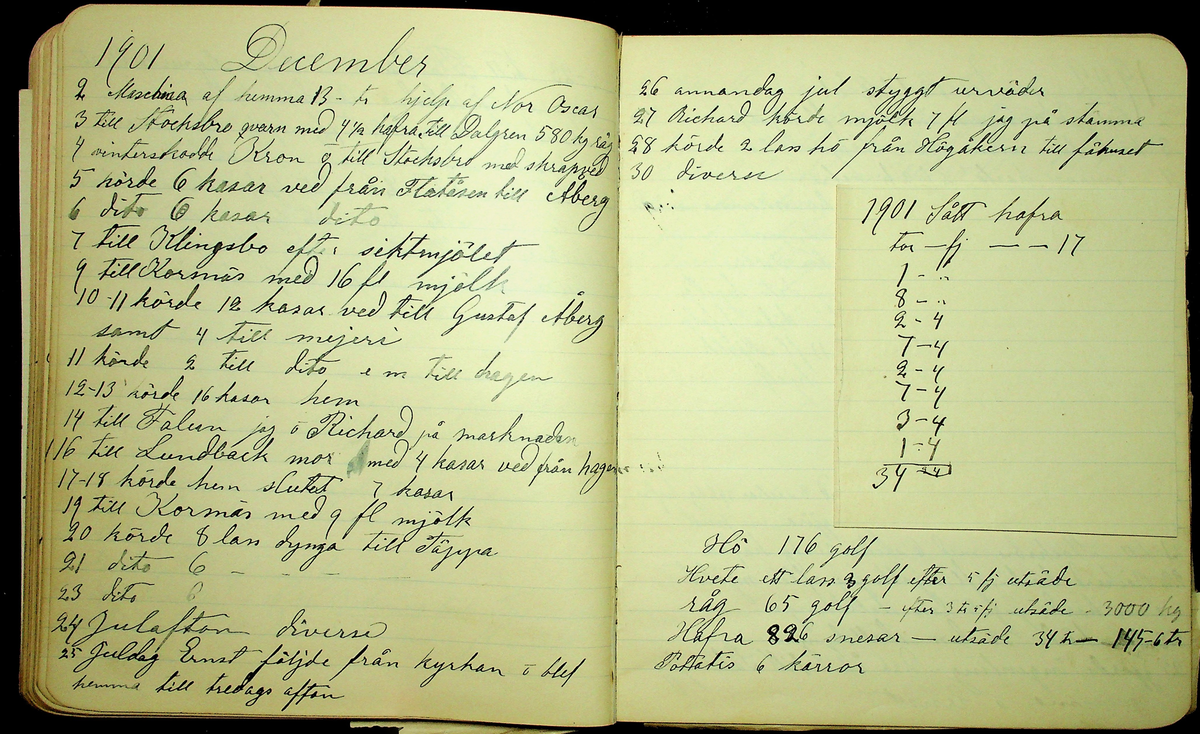 1901 December
2 Maschina af hemma 13 - tr hjelp af Nor Oscar
3 till Stocksbro qvarn med 4 1/2 hafra till Dalgren 580 kg råg
4 vinterskodde Kron o till Stocksbro med skrapved
5 körde 6 kasar ved från Flatåsen till Åberg
6 dito 6 kasar dito
7 till Klingsbo efter siktmjölet
9 till Kornäs med 16 fl mjölk
10-11 körde 12 kasar ved till Gustaf Åberg
samt 4 till mejeri
11 körde 2 till dito e m till hagen
12-13 körde 16 kasar hem
14 till Falun jag o Richard på marknaden
16 till Lundback mor med 4 kasar ved från hagen
17-18 körde hem slutet 7 kasar
19 till Kornäs med 9 fl mjölk
20 körde 8 lan dynga till Täppa
21 dito 6 - - -
23 dito 6
24 Julafton diverse
25 Juldag Ernst följde från kyrkan o blef
hemma till tredags afton
26 annandag jul styggt urväder
27 Richard körde mjölk 7 fl jag på stämma
28 körde 2 lass hö från Högåkern till fähuset
30 diverse
1901 Sått hafra
tor - fj - - 17
1 - "
8 - "
2 - 4
7 - 4
2 - 4
7 - 4
3 - 4
1 - 4
34
Hö 176 golf
Hvete ett lass 3 golf efter 5 fj utsäde
råg 65 golf - efter 3 tr 5 fj utsäde - 3000 kg
Hafra 826 snesar - utsäde 34 tr - 145-6 tr
Potatis 6 kärror